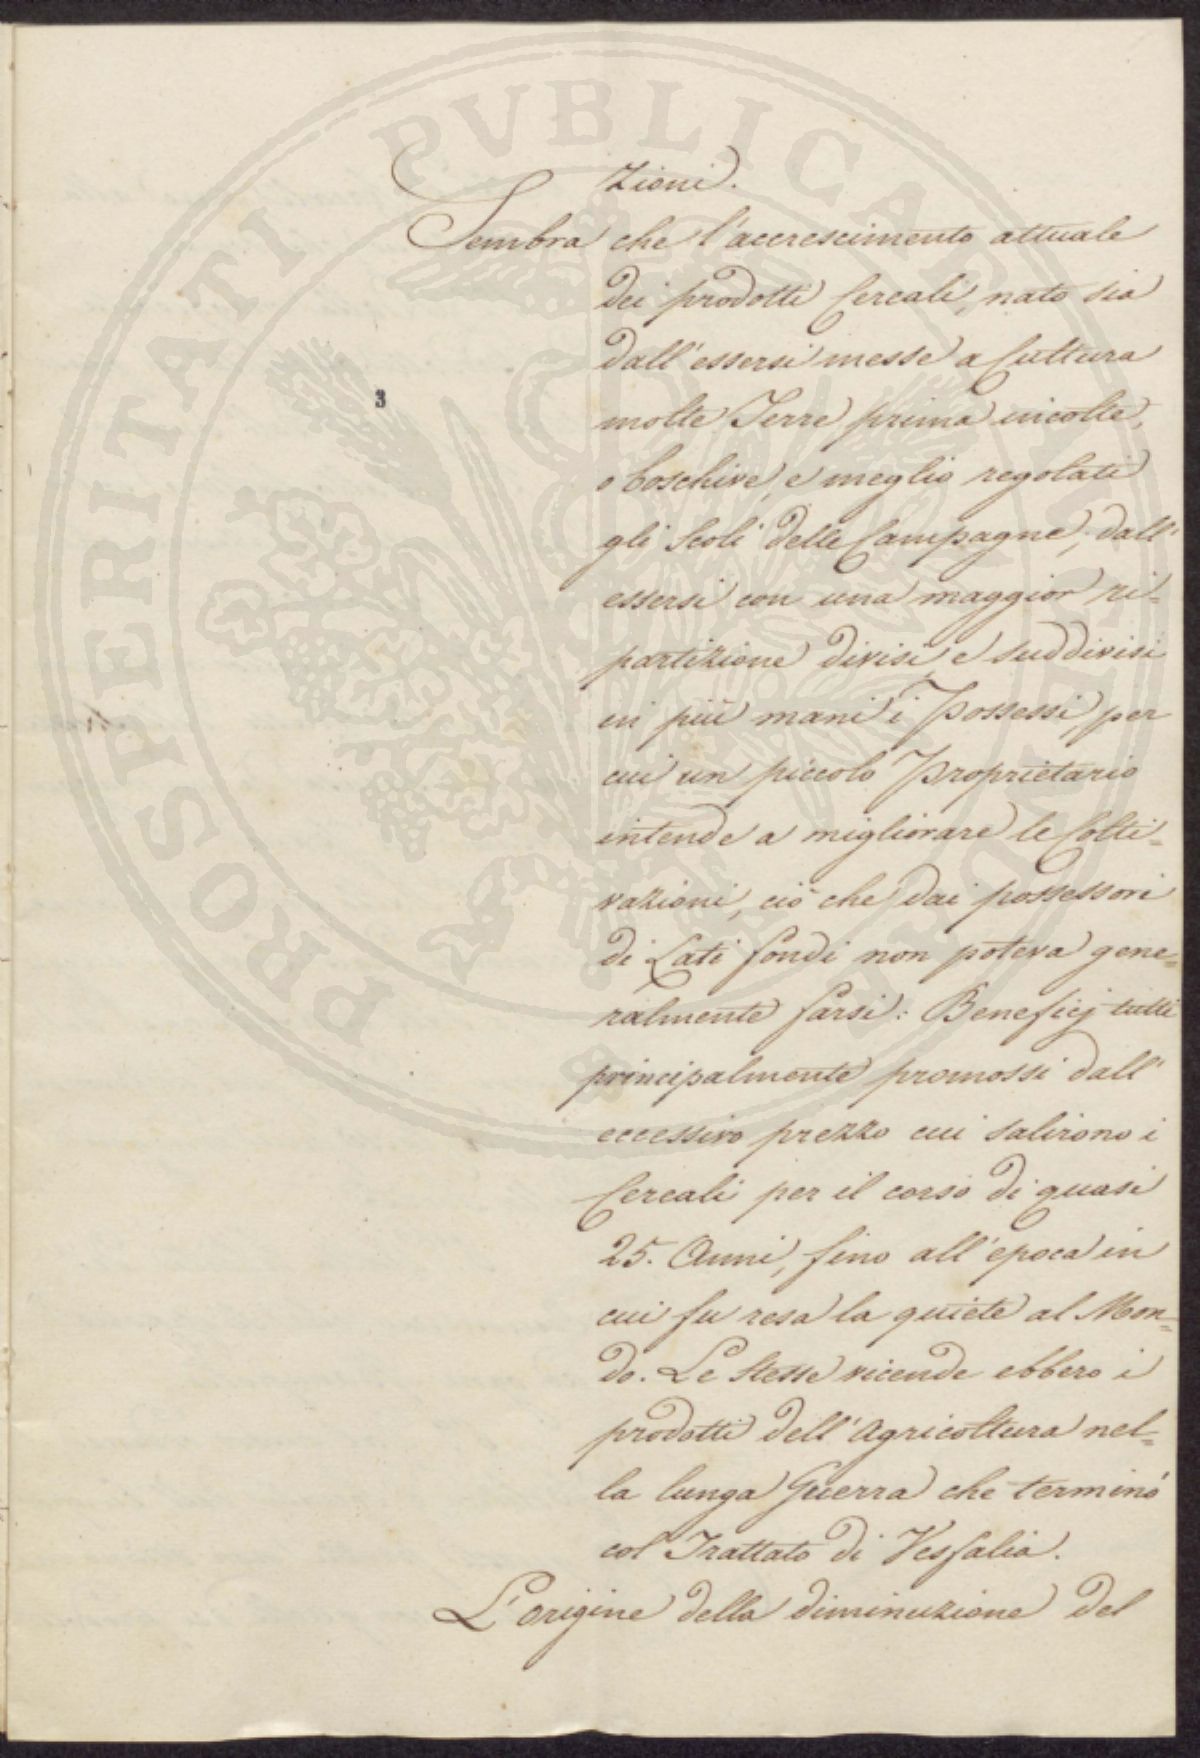 PROSPERITATI PVBLICAE AVGENDAE
zioni.
Sembra che l'accrescimento attuale
dei prodotti Cereali, nato sia
dall'essersi messe a Cultura
molte Terre prima incolte,
3
o boschive, e meglio regolati
gli Scoli delle Campagne; dall'
essersi con una maggior ri-
partizione divisi e suddivisi
in più mani i Possessi, per
cui un piccolo Proprietario
intende a migliorare le Colti=
vazioni, ciò che dai possessori
di Lati fondi non poteva gene=
ralmente farsi: Beneficj tutti
principalmente promossi dall'
eccessivo prezzo cui salirono i
Cereali per il corso di quasi
25. Anni, fino all'epoca in
cui fu resa la quiete al Mon=
do. Le stesse vicende ebbero i
prodotti dell'Agricoltura nel=
la lunga Guerra che terminò
col Trattato di Vesfalia.
L'origine della diminuzione del